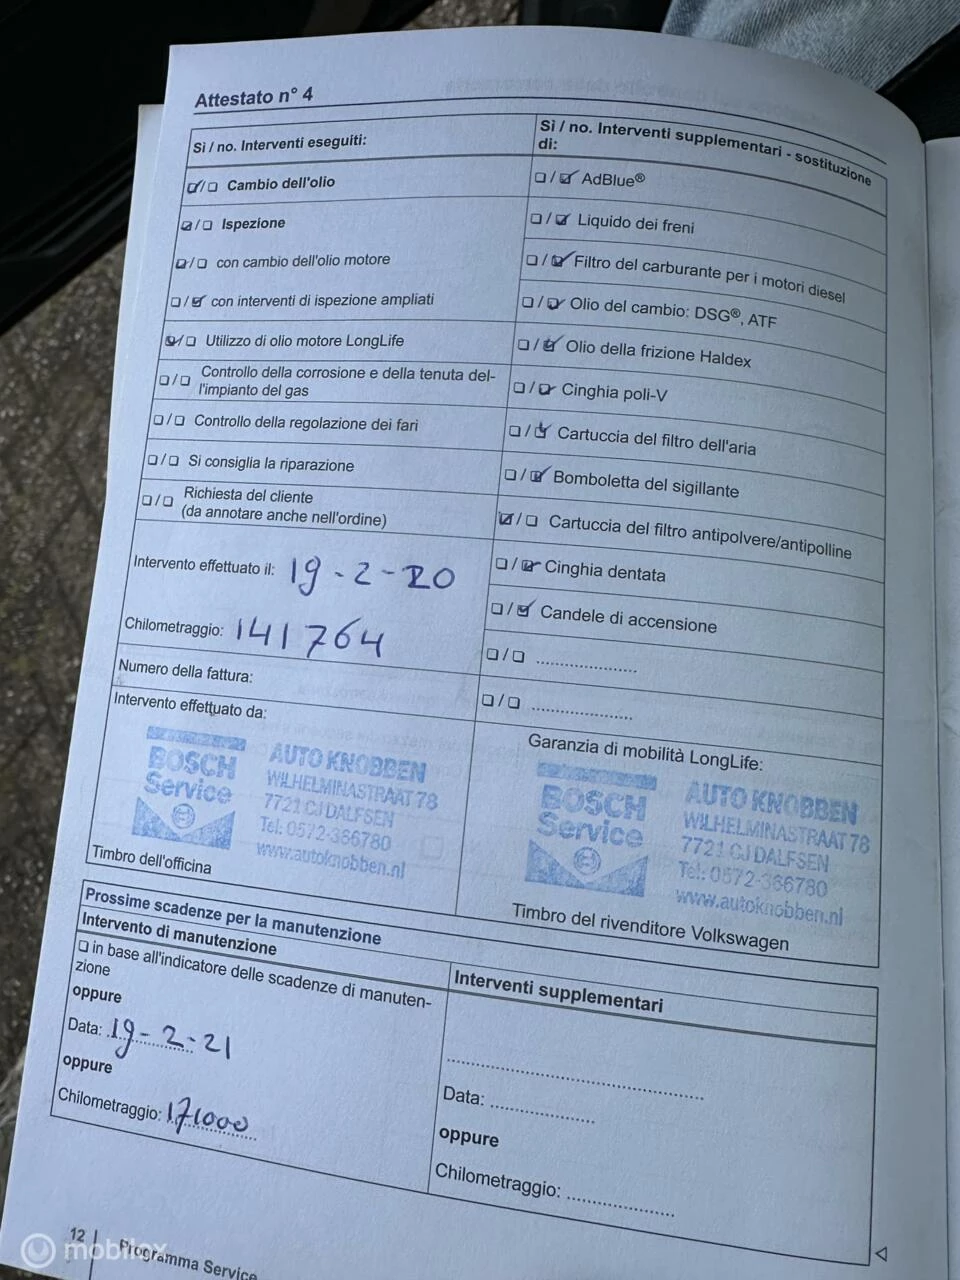 Attestato n° 4
Sì / no. Interventi eseguiti:
☑/☐ Cambio dell'olio
☑/☐ Ispezione
☑/☐ con cambio dell'olio motore
☐/☑ con interventi di ispezione ampliati
☑/☐ Utilizzo di olio motore LongLife
☐/☐ Controllo della corrosione e della tenuta del-
l'impianto del gas
☐/☐ Controllo della regolazione dei fari
☐/☐ Si consiglia la riparazione
☐/☐ Richiesta del cliente
(da annotare anche nell'ordine)
Intervento effettuato il: 19-2-20
Chilometraggio: 141764
Numero della fattura:
Intervento effettuato da:
BOSCH
Service
AUTO KNOBBEN
WILHELMINASTRAAT 78
7721 CJ DALFSEN
Tel: 0572-366780
www.autoknobben.nl
Timbro dell'officina
Sì / no. Interventi supplementari - sostituzione
di:
☐/☑ AdBlue®
☐/☑ Liquido dei freni
☐/☑ Filtro del carburante per i motori diesel
☐/☑ Olio del cambio: DSG®, ATF
☐/☑ Olio della frizione Haldex
☐/☑ Cinghia poli-V
☐/☑ Cartuccia del filtro dell'aria
☐/☑ Bomboletta del sigillante
☑/☐ Cartuccia del filtro antipolvere/antipolline
☐/☑ Cinghia dentata
☐/☑ Candele di accensione
☐/☐ ....................
☐/☐ ....................
Garanzia di mobilità LongLife:
BOSCH
Service
AUTO KNOBBEN
WILHELMINASTRAAT 78
7721 CJ DALFSEN
Tel: 0572-366780
www.autoknobben.nl
Timbro del rivenditore Volkswagen
Prossime scadenze per la manutenzione
Intervento di manutenzione
☐ in base all'indicatore delle scadenze di manuten-
zione
oppure
Data: 19-2-21
oppure
Chilometraggio: 171000
Interventi supplementari
..................................................
Data: ....................
oppure
Chilometraggio: ....................
12 | Programma Service
mobilox